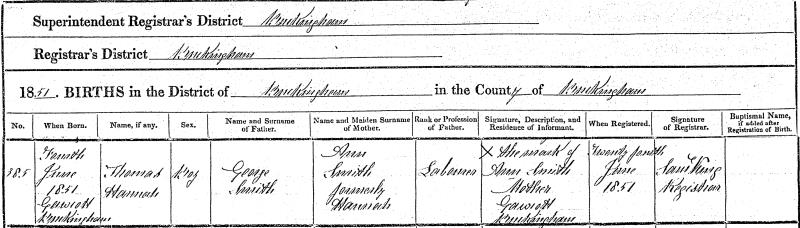 Superintendent Registrar's District Buckingham
Registrar's District Buckingham
1851. BIRTHS in the District of Buckingham in the County of Buckingham
No.
When Born.
Name, if any.
Sex.
Name and Surname
of Father.
Name and Maiden Surname
of Mother.
Rank or Profession
of Father.
Signature, Description, and
Residence of Informant.
When Registered.
Signature
of Registrar.
Baptismal Name,
if added after
Registration of Birth.
385
Fourth
June
1851
Gawcott
Buckingham
Thomas
Hannah
Boy
George
Smith
Ann
Smith
formerly
Hannah
Labourer
X The mark of
Ann Smith
Mother
Gawcott
Buckingham
Twenty fourth
June
1851
Saml King
Registrar